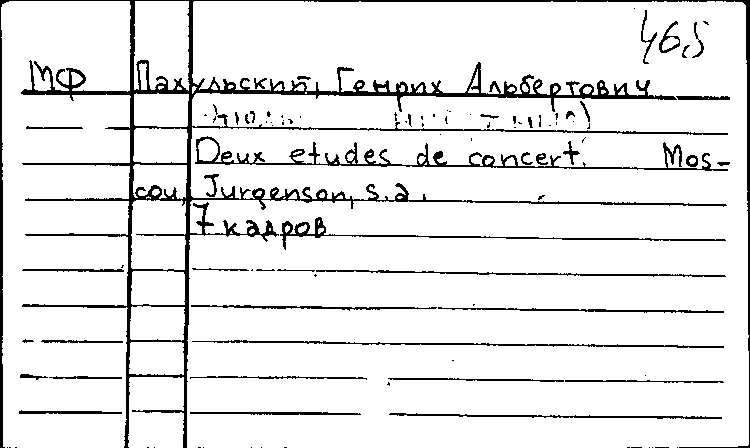 465
МФ Пахульский, Генрих Альбертович
Deux etudes de concert. Mos-
cou, Jurgenson, s.a.
7 кадров